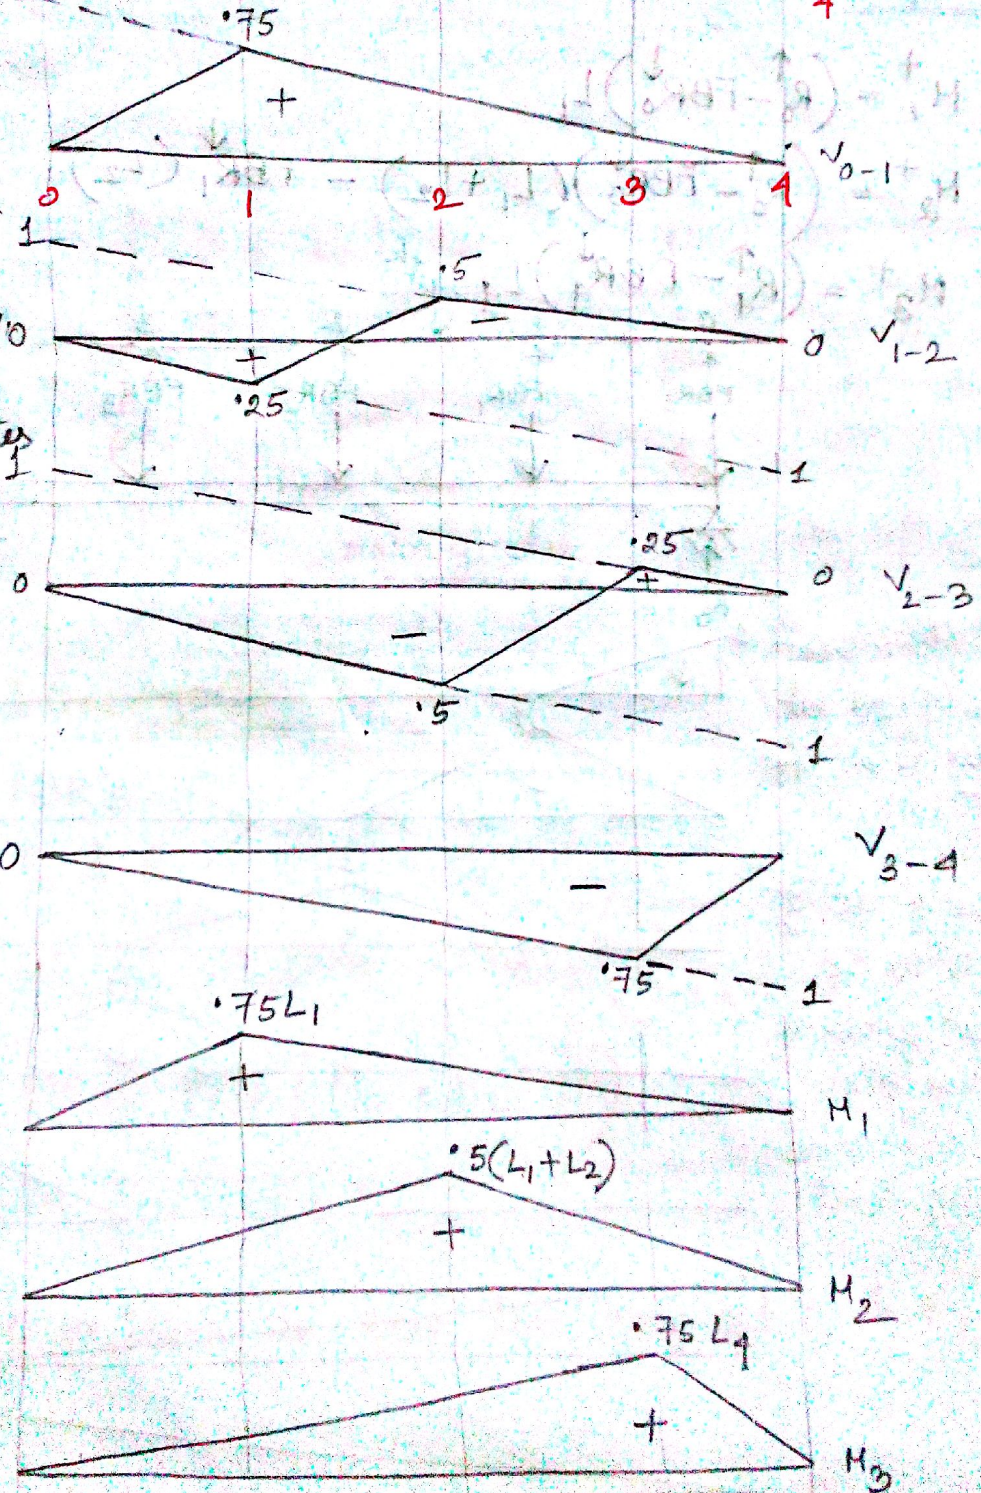 4
.75
+
V0-1
0 1 2 3 4
1
.5
0 + − 0 V1-2
.25
1
1
.25
0 + 0 V2-3
−
.5
1
0 V3-4
−
.75 1
.75L1
+
M1
.5(L1+L2)
+
M2
.75L4
+
M3